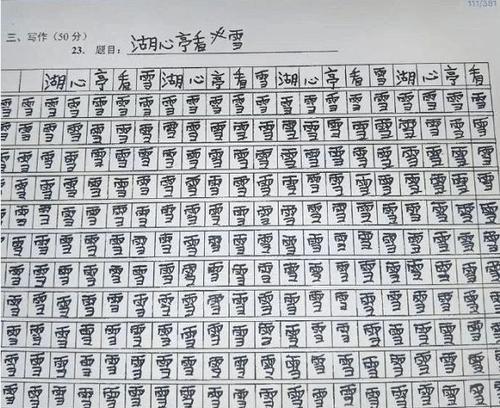 111/381
三、写作（50分）
23. 题目：湖心亭看雪
湖心亭看雪湖心亭看雪湖心亭看雪湖心亭看
雪雪雪雪雪雪雪雪雪雪雪雪雪雪雪雪雪雪雪雪雪
雪雪雪雪雪雪雪雪雪雪雪雪雪雪雪雪雪雪雪雪雪
雪雪雪雪雪雪雪雪雪雪雪雪雪雪雪雪雪雪雪雪雪
雪雪雪雪雪雪雪雪雪雪雪雪雪雪雪雪雪雪雪雪雪
雪雪雪雪雪雪雪雪雪雪雪雪雪雪雪雪雪雪雪雪
雪雪雪雪雪雪雪雪雪雪雪雪雪雪雪雪雪雪雪雪
雪雪雪雪雪雪雪雪雪雪雪雪雪雪雪雪雪雪雪雪
雪雪雪雪雪雪雪雪雪雪雪雪雪雪雪雪雪雪雪雪雪
雪雪雪雪雪雪雪雪雪雪雪雪雪雪雪雪雪雪雪雪雪
雪雪雪雪雪雪雪雪雪雪雪雪雪雪雪雪雪雪雪雪雪
雪雪雪雪雪雪雪雪雪雪雪雪雪雪雪雪雪雪雪雪雪